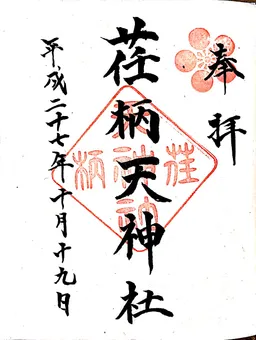 奉拝
荏柄天神社
平成二十七年十月十九日
荏柄
天神
社